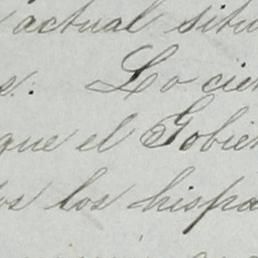 actual situ
s. Lo cier
que el Gobier
os los hispa